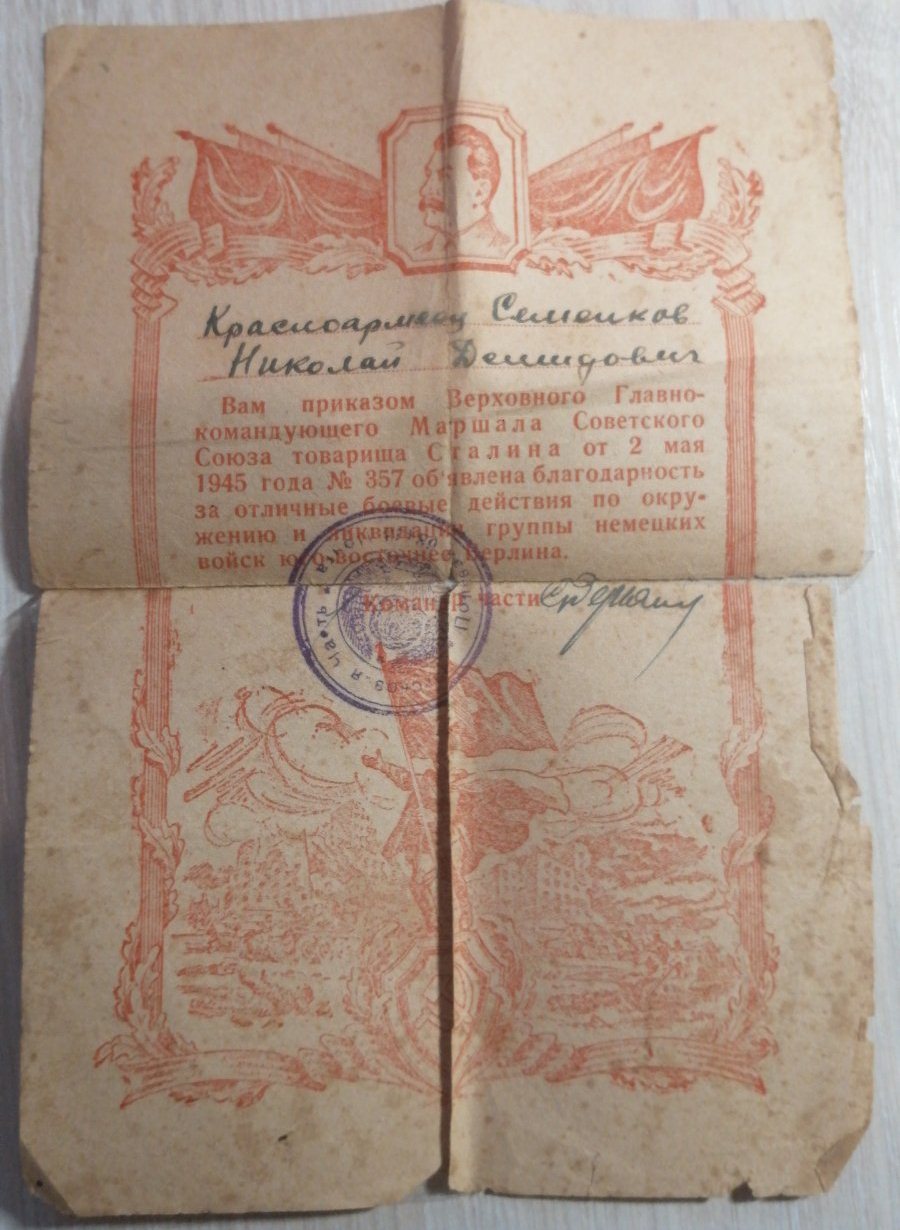 Красноармеец Семенков
Николай Демидович
Вам приказом Верховного Главно-
командующего Маршала Советского
Союза товарища Сталина от 2 мая
1945 года № 357 об'явлена благодарность
за отличные боевые действия по окру-
жению и ликвидации группы немецких
войск юго-восточнее Берлина.
Командир части
часть